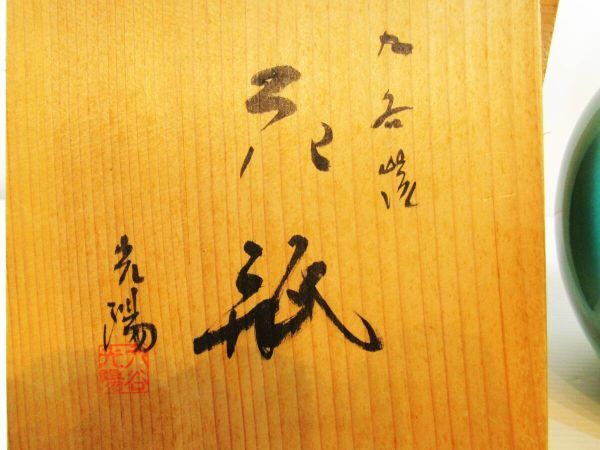 九谷焼
花瓶
光陽
九谷光陽